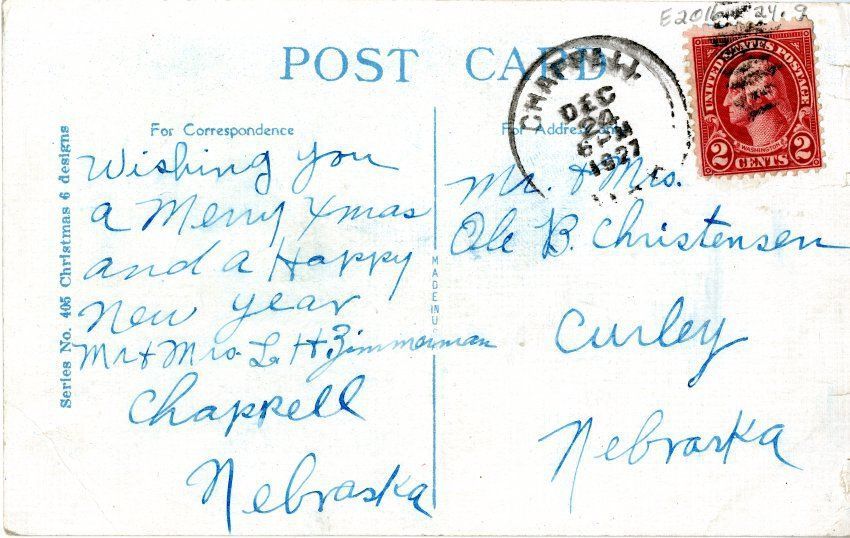 E2016 24.9
POST CARD
CHAPPELL
DEC
20
6 PM
1927
UNITED STATES POSTAGE
WASHINGTON
2 CENTS 2
Series No. 405 Christmas 6 designs
For Correspondence
Wishing you
a Merry Xmas
and a Happy
New year
Mr & Mrs. L. H. Zimmerman
Chappell
Nebraska
MADE IN U
For Address
Mr. & Mrs.
Ole B. Christensen
Curley
Nebraska